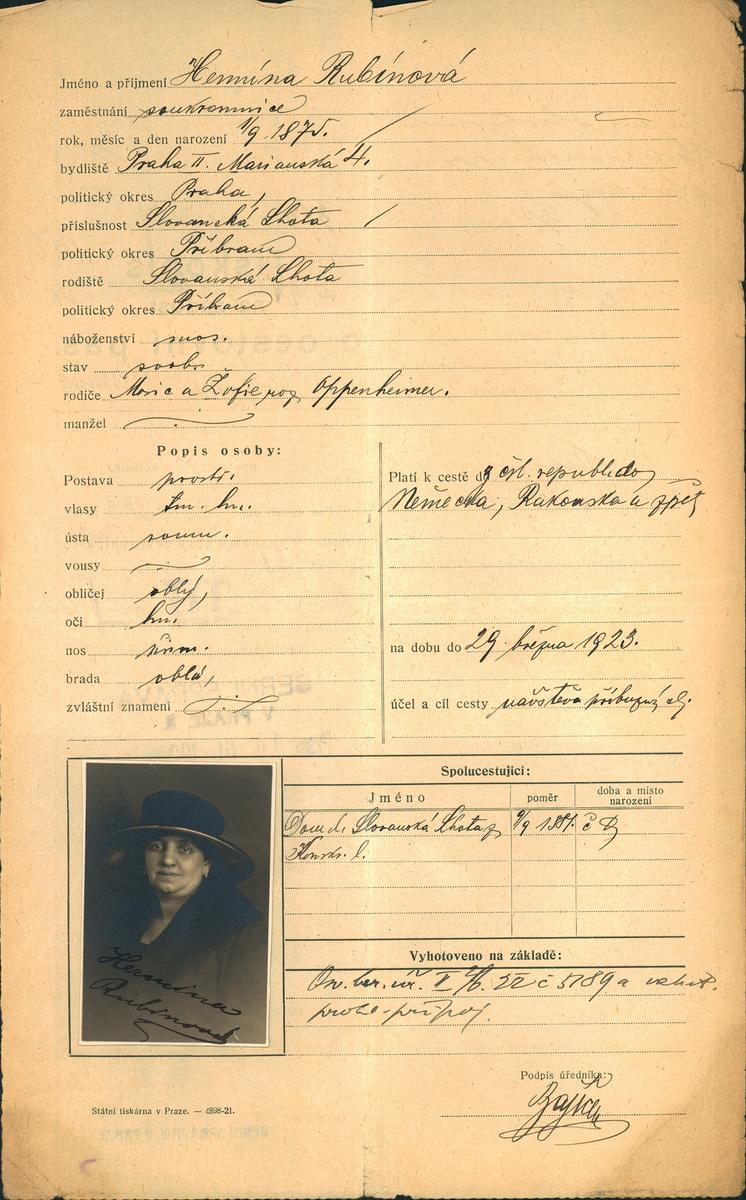 Jméno a příjmení Hermína Rubínová
zaměstnání soukromnice
rok, měsíc a den narození 1/9 1875.
bydliště Praha II. Marianská 4.
politický okres Praha,
příslušnost Slovanská Lhota
politický okres Příbram
rodiště Slovanská Lhota
politický okres Příbram
náboženství mos.
stav svob.
rodiče Moric a Žofie roz. Oppenheimer.
manžel
Popis osoby:
Postava prostř.
vlasy tm. hn.
ústa soum.
vousy
obličej oblý,
oči hn.
nos
brada oblá,
zvláštní znamení
Platí k cestě d z čsl. republ. do
Německa, Rakouska a zpět
na dobu do 29. března 1923.
účel a cíl cesty návštěva příbuzných
Spolucestující:
Jméno poměr doba a místo narození
Dom. l. Slovanská Lhota 9/9 č
l.
Vyhotoveno na základě:
II č 5789 a
Hermina
Rubinová
Podpis úředníka:
Státní tiskárna v Praze. — 4898-21.